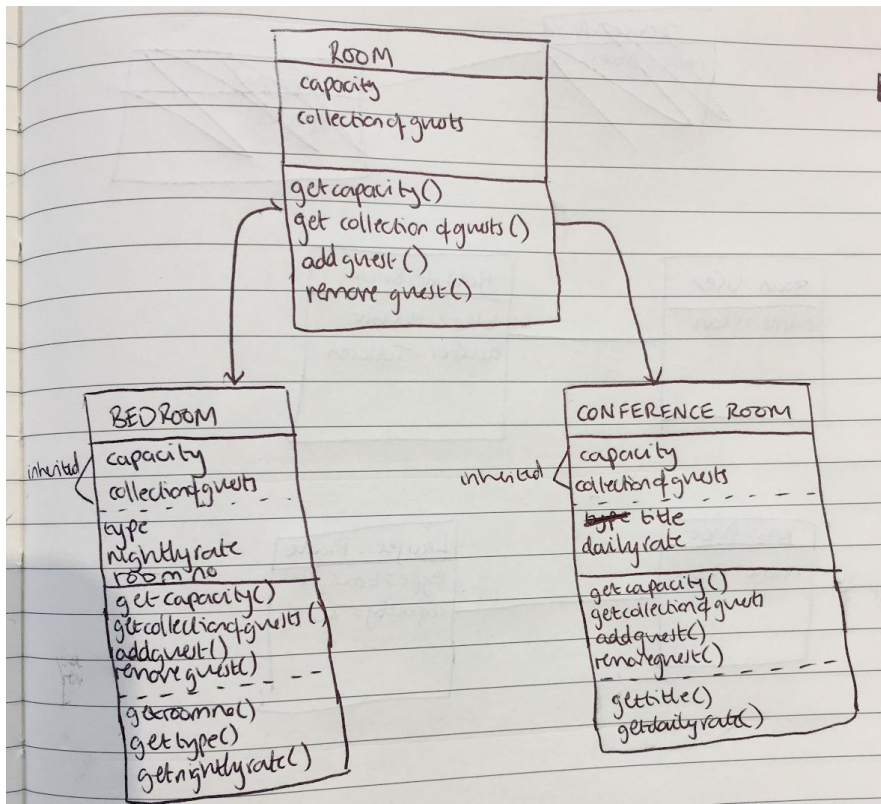 ROOM
capacity
collection of guests
getcapacity()
get collection of guests()
add guest()
remove guest()
BEDROOM
inherited
capacity
collection of guests
type
nightlyrate
room no
getcapacity()
getcollectionofguests()
addguest()
remove guest()
getroomno()
gettype()
getnightlyrate()
CONFERENCE ROOM
inherited
capacity
collection of guests
type title
dailyrate
getcapacity()
getcollectionofguests
addguest()
removeguest()
gettitle()
getdailyrate()